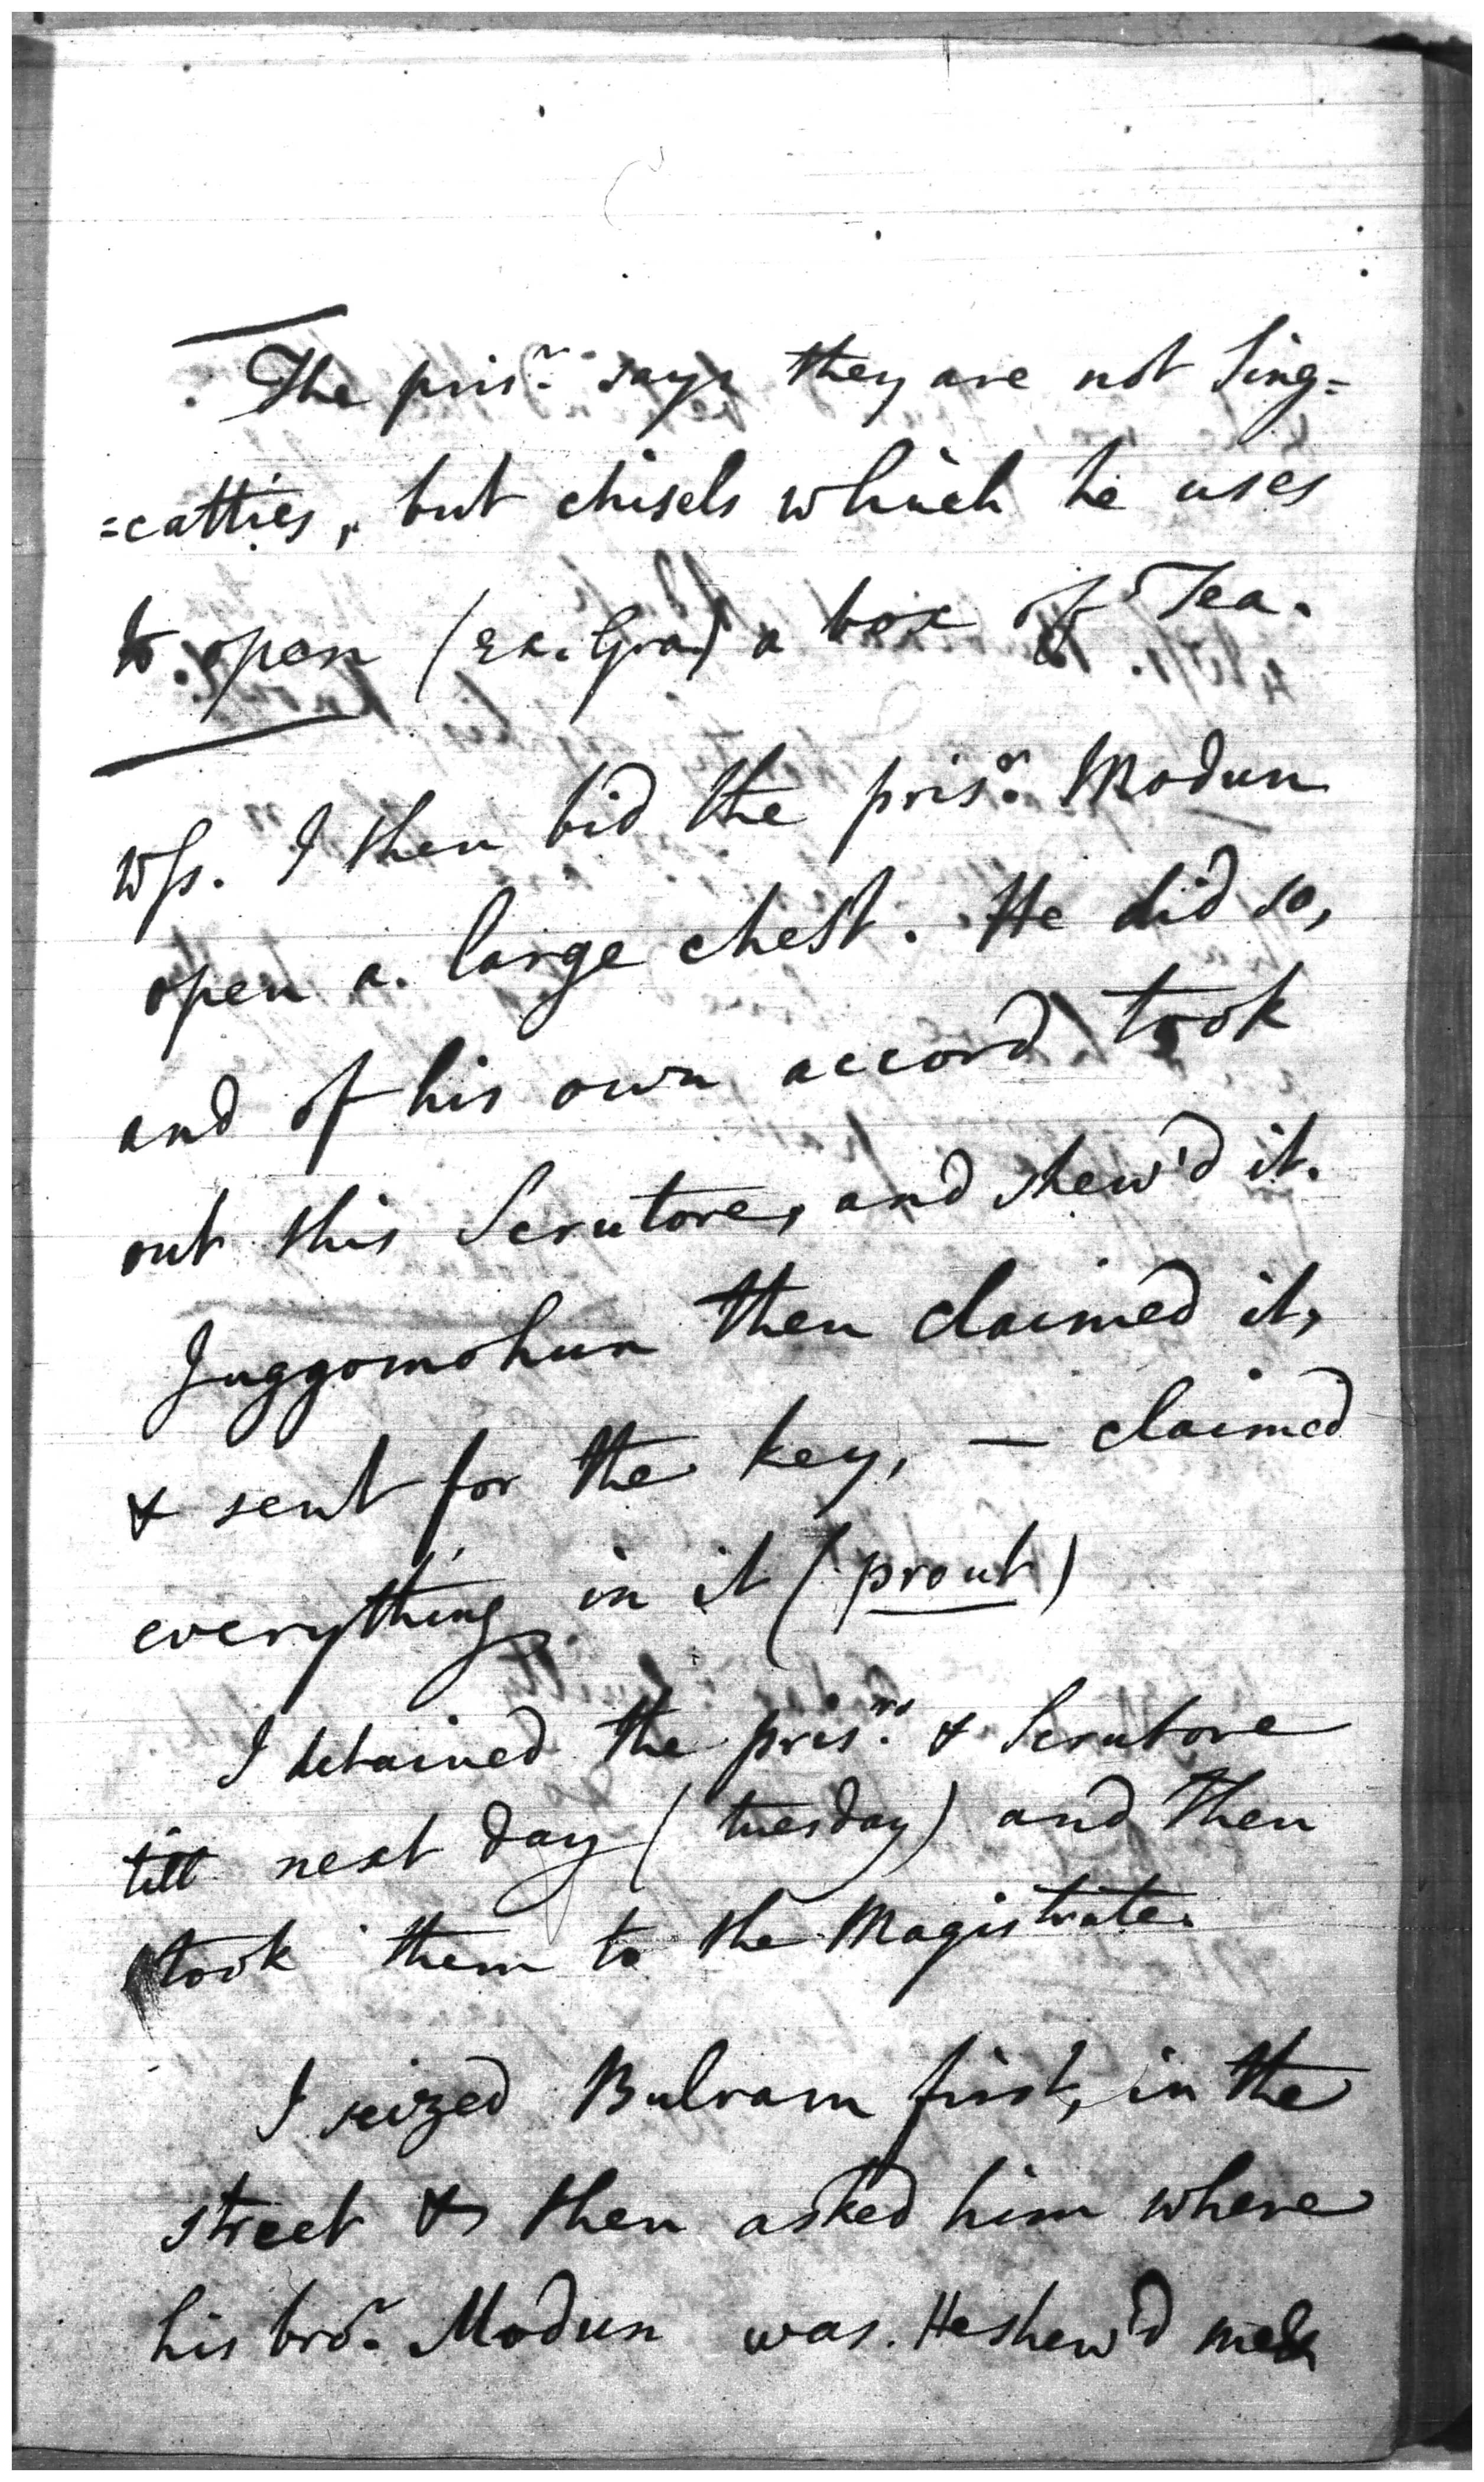 The pris.r says they are not Sing=
=catties, but chisels which he uses
to open (Ex. Gra.) a box of Tea.
Wss. I then bid the pris.r Modun
open a large chest. He did so,
and of his own accord took
out this Scrutore, and shew'd it.
Juggomohun then claimed it,
& sent for the key, — claimed
everything in it (prout)
I detained the pris.rs & Scrutore
till next day (tuesday) and then
took them to the Magistrate.
I seized Bulram first, in the
street & then asked him where
his bro.r Modun was. He shew'd me